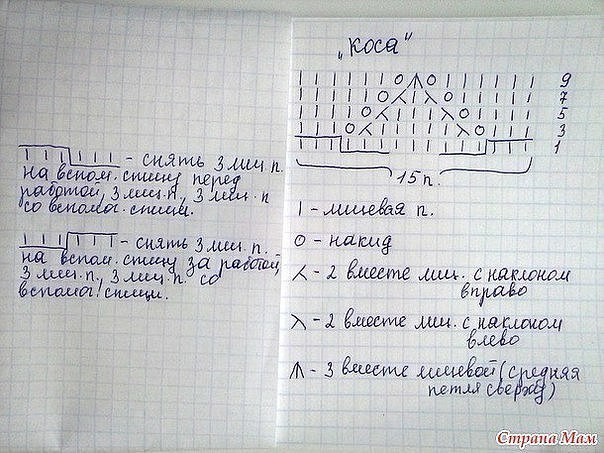 – снять 3 лиц п.
на вспом. спицу перед
работой, 3 лиц. п., 3 лиц. п
со вспомог. спицы.
– снять 3 лиц. п.
на вспом. спицу за работой,
3 лиц. п., 3 лиц. п. со
вспомог. спицы.
"коса"
| | | | | | O ⋀ O | | | | | | 9
| | | | | O ⋌ | ⋋ O | | | | | 7
| | | | O ⋌ | | | ⋋ O | | | | 5
| | | O ⋌ | | | | | ⋋ O | | | 3
| | | | | | | | | | | | | | | 1
15 п.
| – лицевая п.
O – накид
⋌ – 2 вместе лиц. с наклоном
вправо
⋋ – 2 вместе лиц. с наклоном
влево
⋀ – 3 вместе лицевой (средняя
петля сверху)
Страна Мам